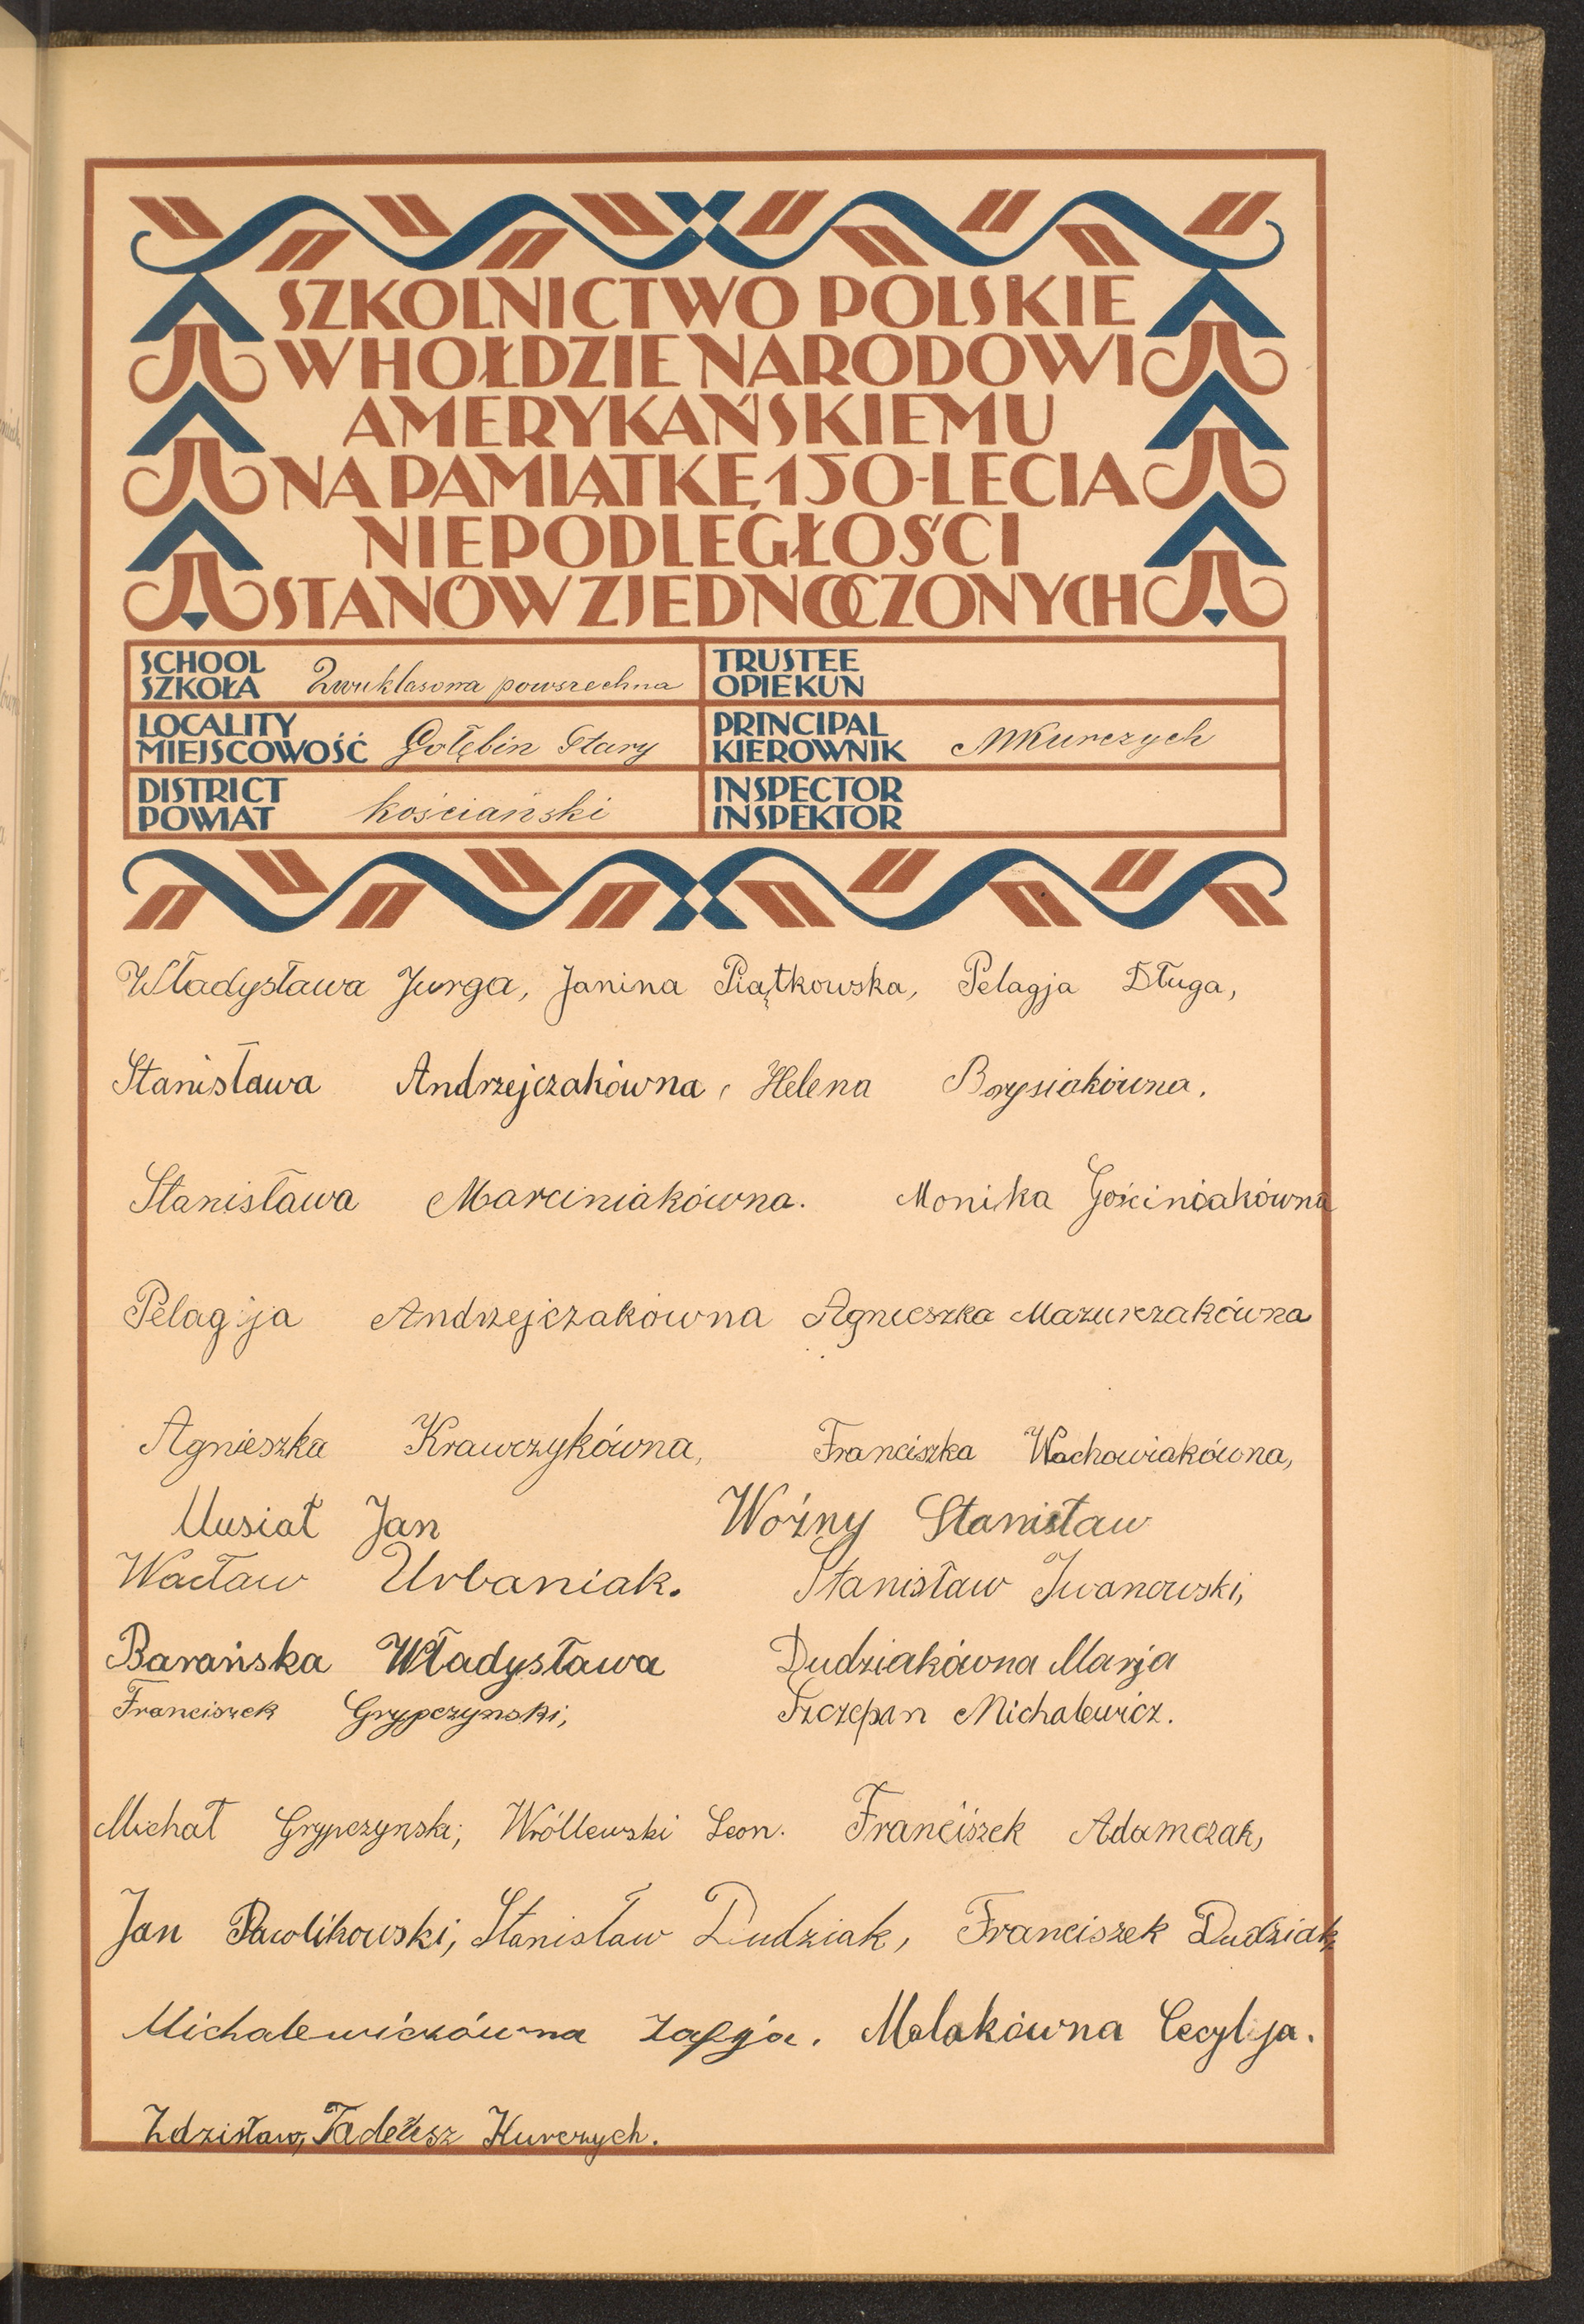 SZKOLNICTWO POLSKIE
W HOŁDZIE NARODOWI
AMERYKAŃSKIEMU
NA PAMIĄTKĘ 150-LECIA
NIEPODLEGŁOŚCI
STANÓW ZJEDNOCZONYCH
SCHOOL
SZKOŁA Dwuklasowa powszechna
TRUSTEE
OPIEKUN
LOCALITY
MIEJSCOWOŚĆ Gołębin Stary
PRINCIPAL
KIEROWNIK MKurczych
DISTRICT
POWIAT kościański
INSPECTOR
INSPEKTOR
Władysława Jurga, Janina Piątkowska, Pelagja Długa,
Stanisława Andrzejczakówna, Helena Borysiakówna.
Stanisława Marciniakówna. Monika Gościniakówna
Pelagja Andrzejczakówna Agnieszka Mazurczakówna
Agnieszka Krawczykówna, Franciszka Wachowiakówna,
Musiał Jan Woźny Stanisław
Wacław Urbaniak. Stanisław Iwanowski,
Barańska Władysława Dudziakówna Marja
Franciszek Grypczynski, Szczepan Michalewicz.
Michał Grypczynski, Wróllewski Leon. Franciszek Adamczak,
Jan Pawlikowski, Stanisław Dudziak, Franciszek Dudziak,
Michalewiczówna Zofja. Malakówna Cecylja.
Zdzisław, Tadeusz Kurczych.